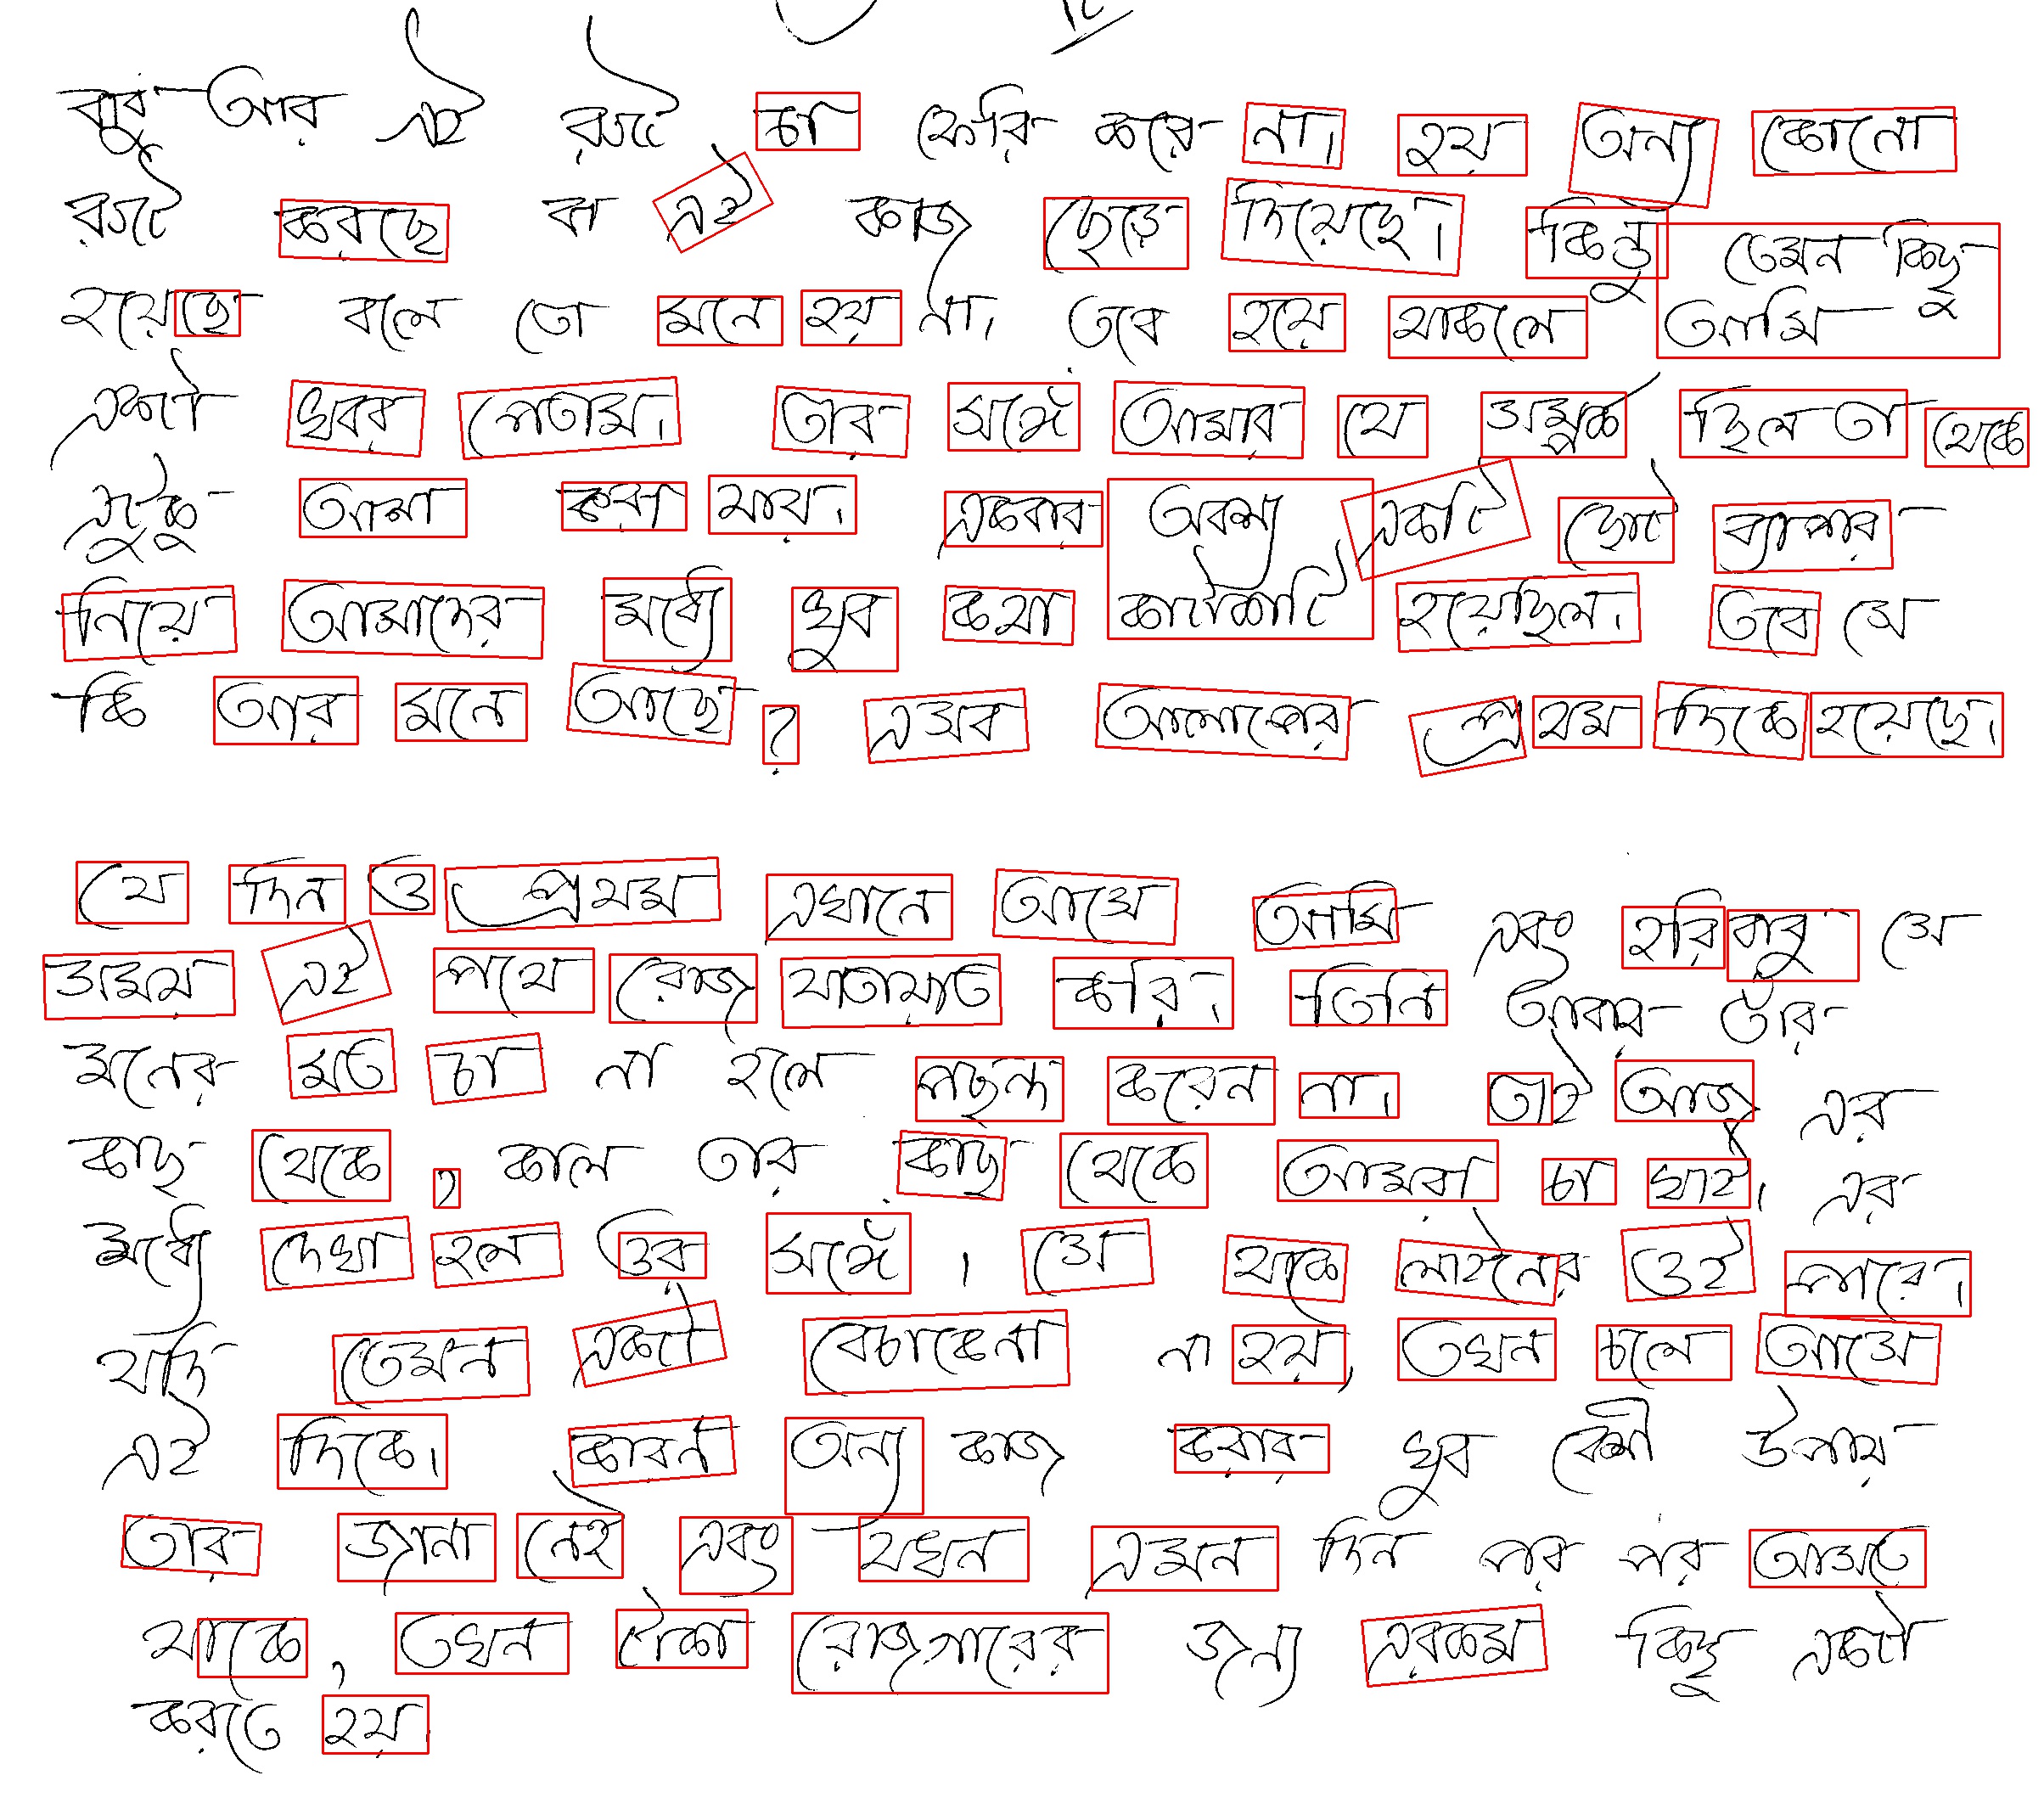 বাবু আর এই রুটে চা ফেরি করে না। হয় অন্য কোনো
রুটে করছে বা এই কাজ ছেড়ে দিয়েছে। কিন্তু তেমন কিছু
হয়েছে বলে তো মনে হয় না। তবে হয়ে থাকলে আমি
একটা খবর পেতাম। তার সঙ্গে আমার যে সম্পর্ক ছিল তা থেকে
এটুকু আশা করা যায়। একবার অবশ্য একটি ছোট ব্যাপার
নিয়ে আমাদের মধ্যে খুব কথা কাটাকাটি হয়েছিল। তবে সে
কি আর মনে আছে ? এসব আলাপের প্রথম দিকে হয়েছে।
যে দিন ও প্রথম এখানে আসে আমি এবং হরিবাবু সে
সময় এই পথে রোজ যাতায়াত করি। তিনি আবার তাঁর
মনের মত চা না হলে পছন্দ করেন না। তাই আজ এর
কাছ থেকে , কাল তার কাছ থেকে আমরা চা খাই। এর
মধ্যে দেখা হল ওর সঙ্গে । সে থাকে লাইনের ওই পারে।
যদি তেমন একটা বেচাকেনা না হয়, তখন চলে আসে
এই দিকে। কারন অন্য কাজ করার খুব বেশী উপায়
তার জানা নেই এবং যখন এমন দিন পর পর আসতে
থাকে , তখন টাকা রোজগারের জন্য এরকম কিছু একটা
করতে হয়